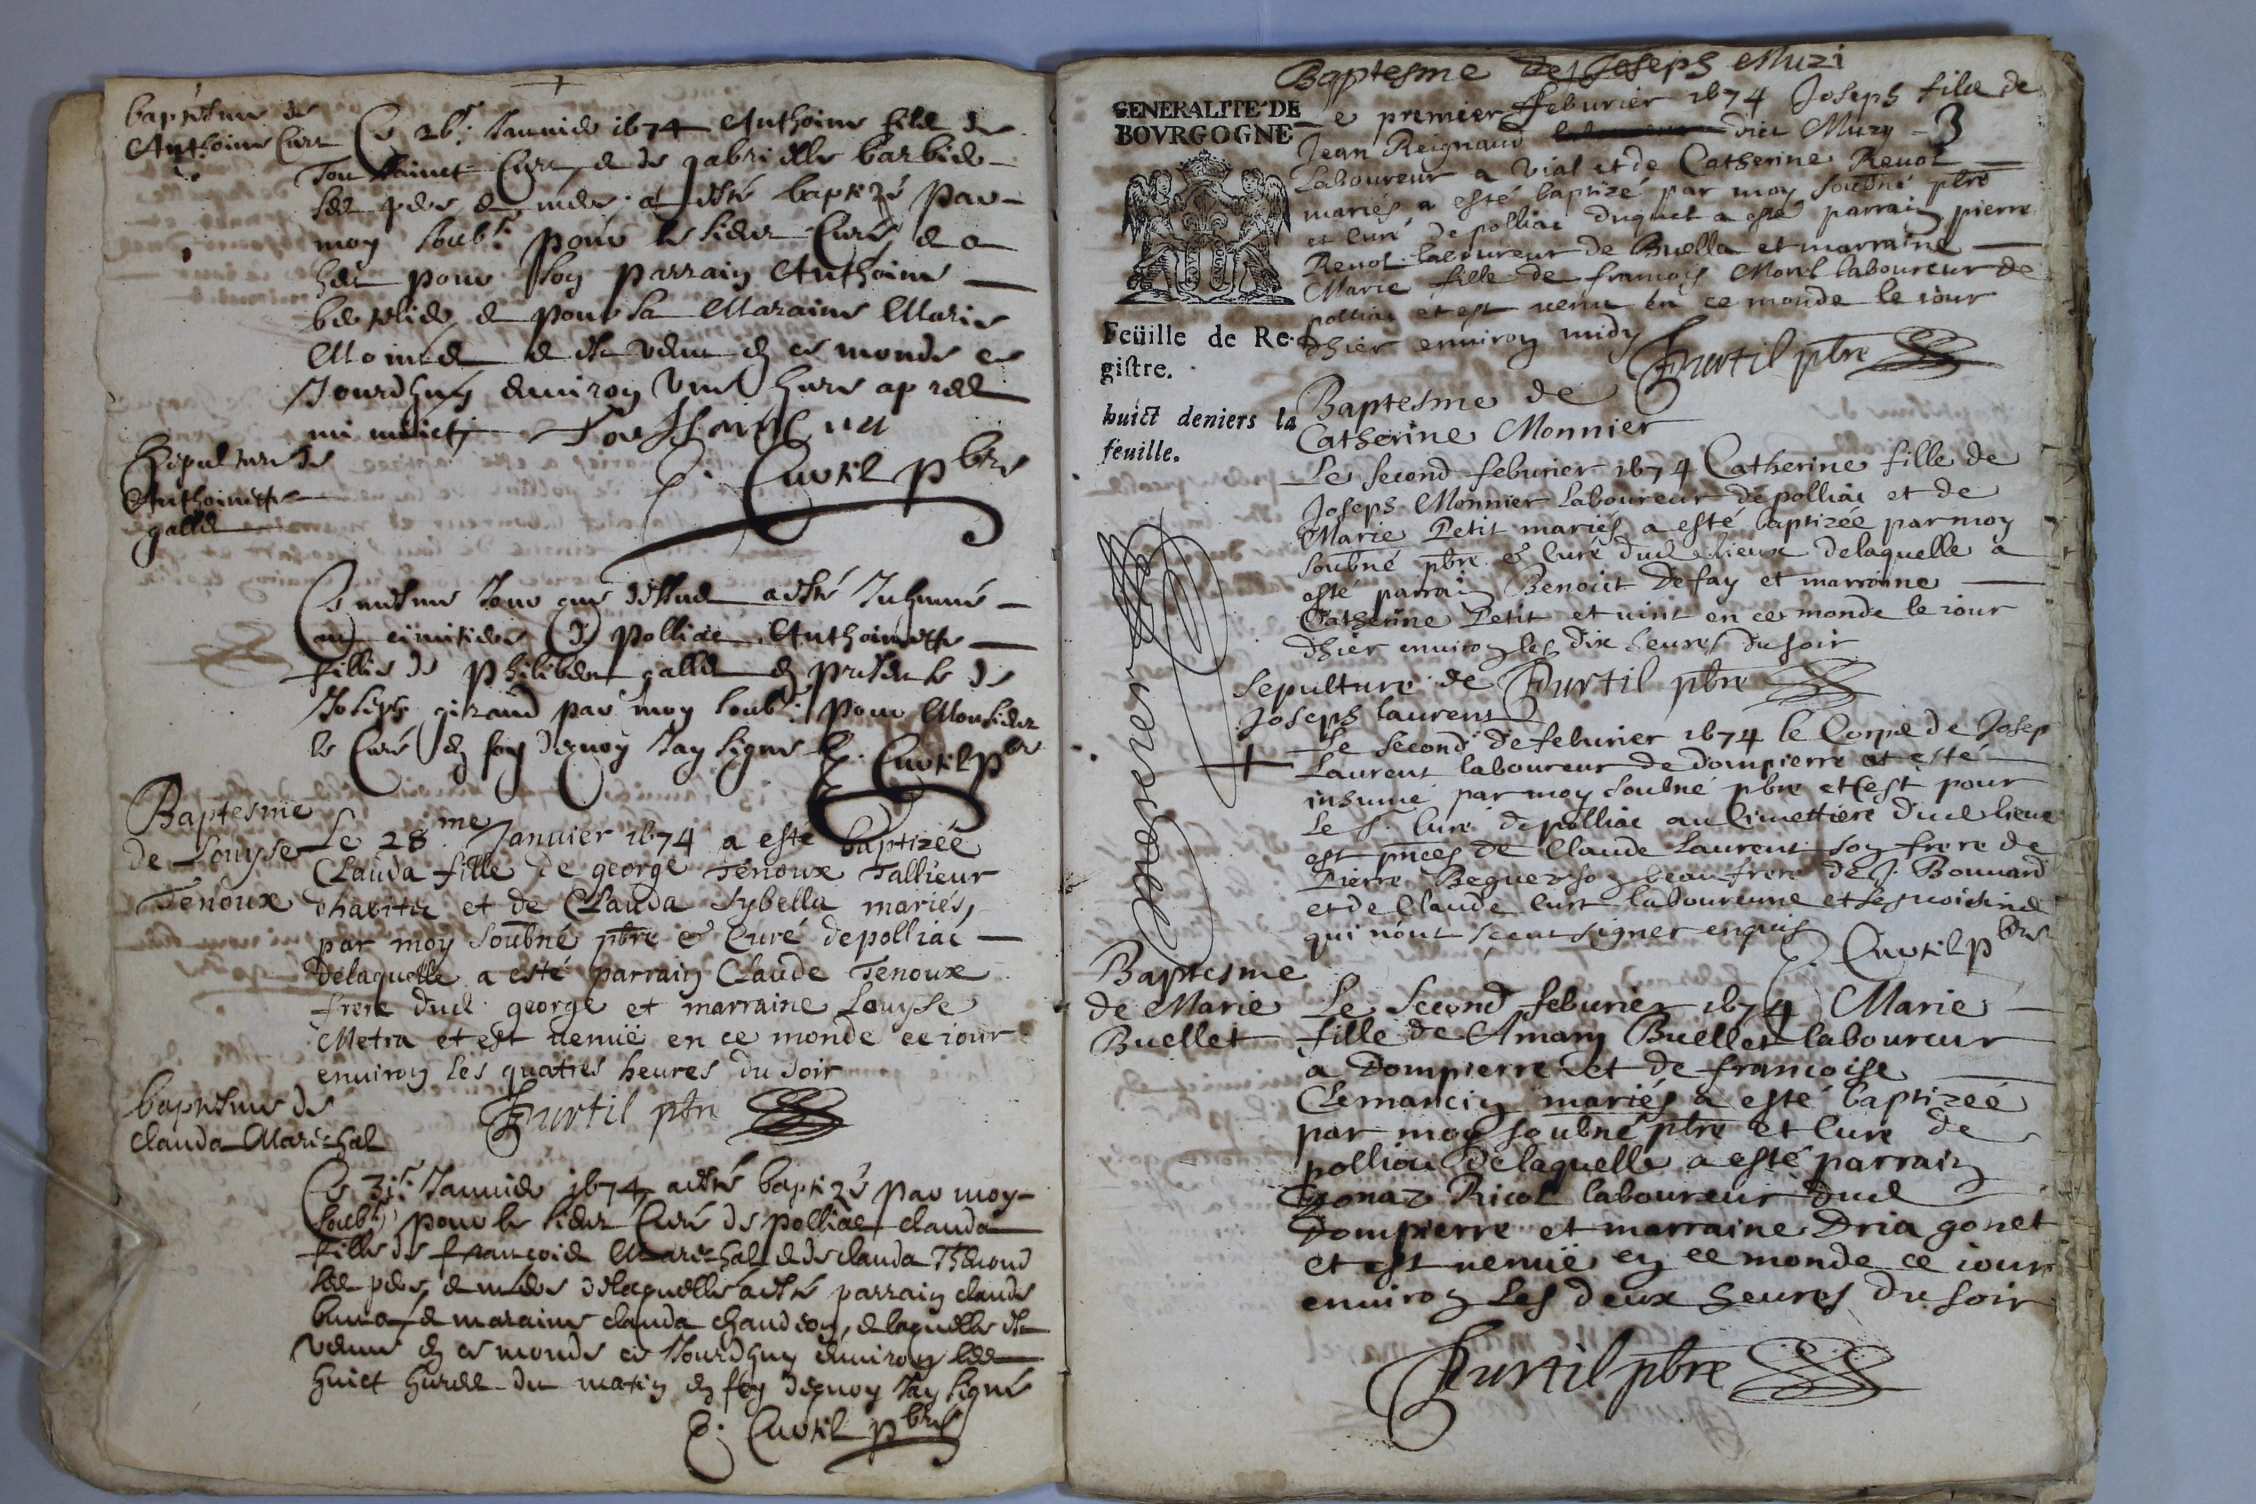 baptesme de
Anthoine Curt
Ce 26e Januier 1674 Anthoine filz de
Toussainct Curt et de gabrielle barbier
ses pere et mere a esté baptizé par
moy soubs. pour le sieur Curé et a
heu pour son parrain Anthoine
et pour sa Maraine Marie
Moinet et est venu en ce monde ce
Jourdhuy enuiron vne heure apres
mi
C. Curtil pbre
Sepulture de
Anthoinette
gallet
Ce mesme Jour que dessus a esté Inhumé
au cimitiere de Polliac Anthoinette
fillie de philibert gallet en presence de
Joseph girand par moy soubs. pour Monsieur
le Curé en foy dequoy Jay signé C. Curtil pbre
Baptesme
de Louyse
Tenoux
Le 28.me Januier 1674 a esté baptizée
Clauda fille de george Tenoux Tallieur
dhabitz et de Clauda Sybella mariés,
par moy soubné pbre & Curé de polliac
delaquelle a esté parrain Claude Tenoux
frere dud. george et marraine Louyse
Metra et est venuë en ce monde ce iour
enuiron les quatres heures du soir
Curtil pbre
baptesme de
clauda Mareschal
Ce 31e Januier 1674 a esté baptizé par moy
soubs. pour le sieur Curé de polliac clauda
fille de francois Mareschal et de clauda Thenoud
ses pere et mere delaquelle a esté parrain claude
et maraine clauda chaudon, et laquelle est
venue en ce monde ce Jourdhuy enuiron les
huict heures du matin en foy dequoy Jay signé
C. Curtil pbre
Baptesme de Joseph Muzi
GENERALITE DE
BOVRGOGNE
3
Le premier feburier 1674 Joseph filz de
Jean Reignaud dict Muzy
Laboureur a Vial et de Catherine Reuol
mariés a esté baptizé par moy soubné pbre
et Curé de polliac duquel a esté parrain pierre
Reuol laboureur de Buella et marraine
Marie fille de francois Morel laboureur de
polliac et est venu en ce monde le iour
dhier enuiron midy
Curtil pbre
Feüille de Re-
gistre.
huict deniers la
feuille.
Baptesme de
Catherine Monnier
Le second feburier 1674 Catherine fille de
Joseph Monnier Laboureur de polliac et de
Marie Petit mariés a esté baptizée par moy
soubné pbre & Curé dud. lieux delaquelle a
esté parrain Benoict Defay et marraine
Catherine Petit et vint en ce monde le iour
dhier enuiron les dix heures du soir
Curtil pbre
Sepulture de
Joseph laurent
Le second de feburier 1674 le Corps de Josep
Laurent laboureur de dompierre at esté
inhumé par moy soubné pbre et cest pour
Le s. Curé de polliac au Cimettiere dud. lieux
est pnces de Claude Laurent son frere de
Pierre Beguet son beau frere de J. Bonnard
et de Claude Curt laboureurs et ses voisins
qui nont sceut signer enquis
C. Curtil pbre
Baptesme
de Marie
Buellet
Le Second feburier 1674 Marie
fille de Amary Buellet laboureur
a Dompierre et de francoise
Clemancin mariés a esté baptizée
par moy soubné pbre et Curé de
polliac delaquelle a esté parrain
Ricol laboureur dud.
Dompierre et marraine Dria gonet
et est venuë en ce monde ce iour
enuiron les deux heures du soir
Curtil pbre